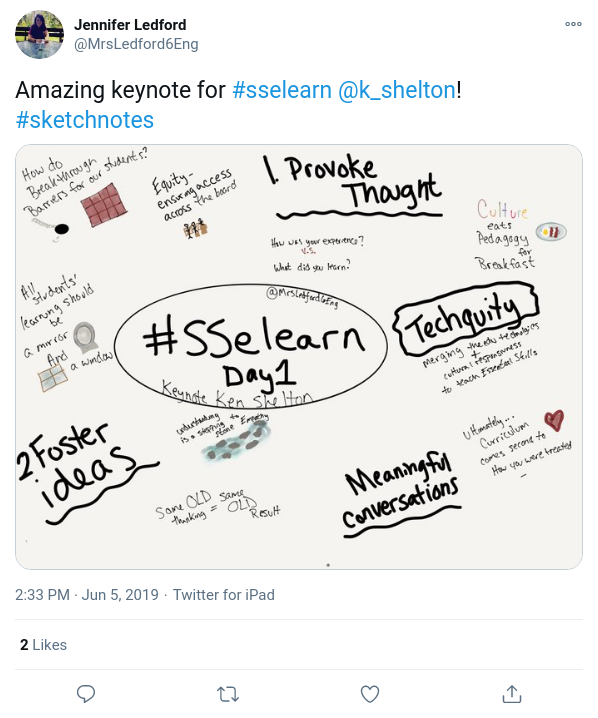 Jennifer Ledford
@MrsLedford6Eng
Amazing keynote for #sselearn @k_shelton!
#sketchnotes
How do
Breakthrough
Barriers for our students?
Equity-
ensuring access
across the board
1. Provoke
Thought
How was your experience?
v.s.
What did you learn?
Culture
eats
Pedagogy
for
Breakfast
All
students'
learning should
be
a mirror
And
a window
@MrsLedford6Eng
#SSelearn
Day1
Keynote Ken Shelton
Techquity
merging the edu technologies
+
cultural responsiveness
to teach Essential Skills
understanding
is a stepping to
stone Empathy
2 Foster
ideas
Same OLD same
thinking = OLD
Result
Meaningful
conversations
Ultimately...
Curriculum
comes second to
How you were treated
2:33 PM · Jun 5, 2019 · Twitter for iPad
2 Likes